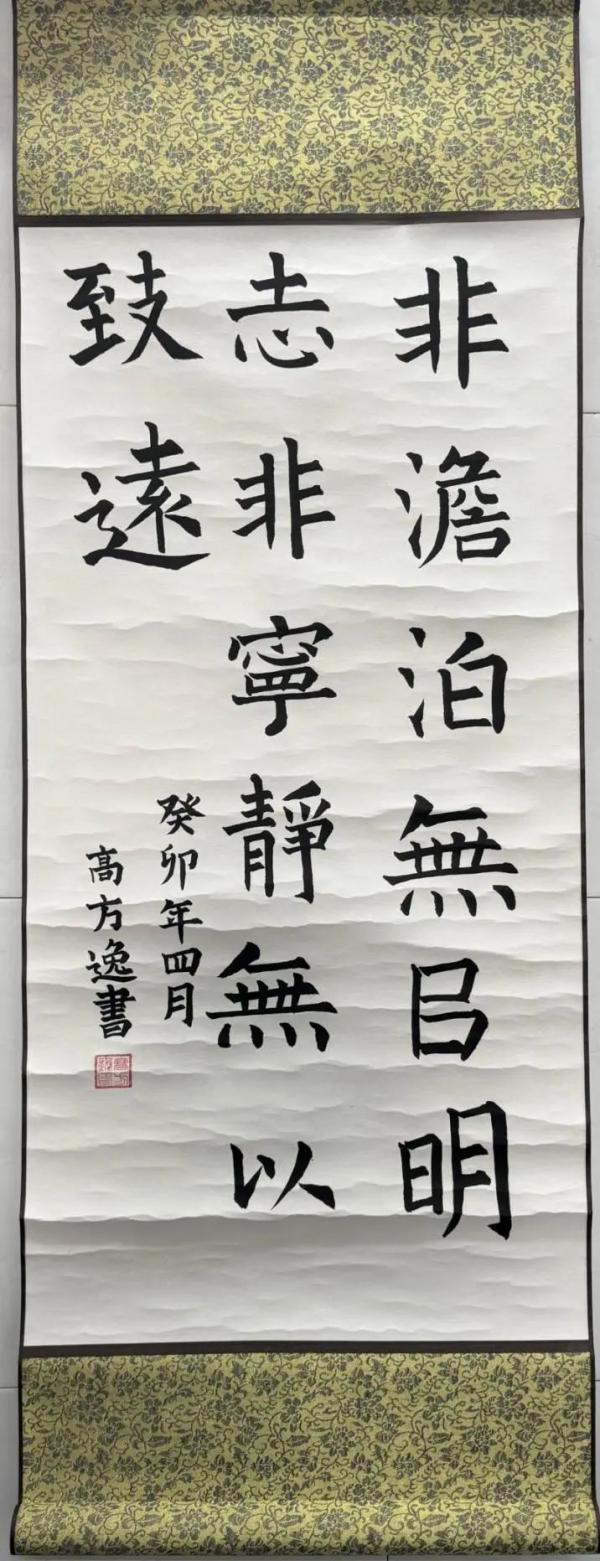 非澹泊無㠯明
志非寧靜無以
致遠
癸卯年四月
高方逸書